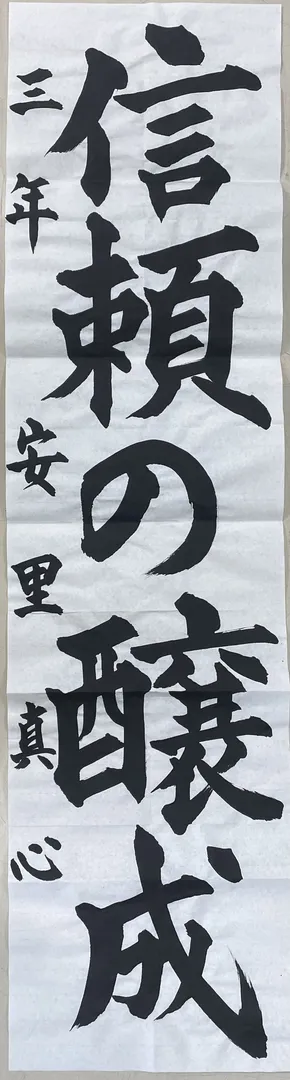 信頼の醸成
三年 安里真心